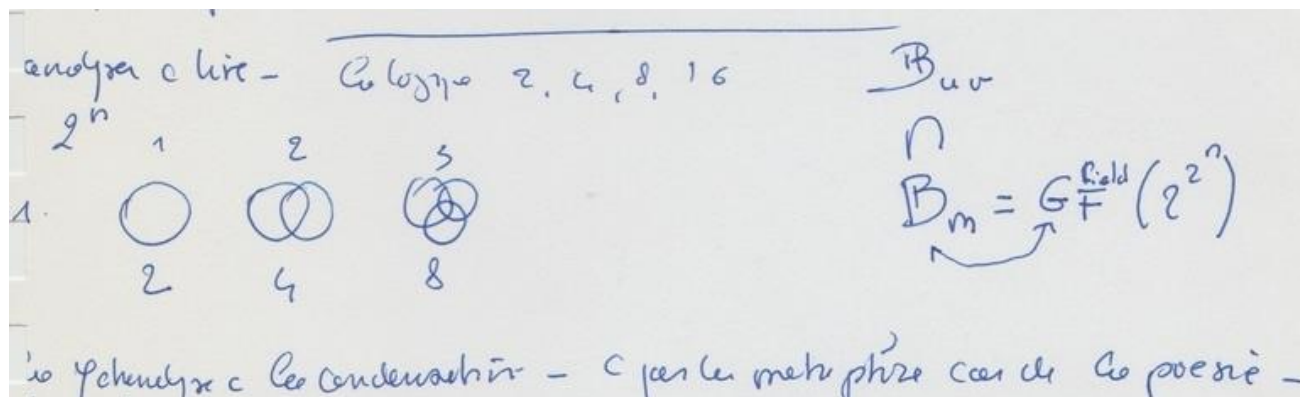 analyser c lire - Cologne 2, 4, 8, 16 B u v
2^n 1 2 3 ∩
1. B_m = G F field (2^{2^n})
2 4 8
la condensation - c pas la métaphore car de la poésie -